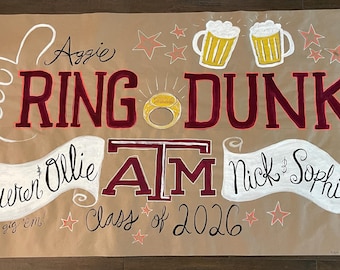 Aggie
RING DUNK
& Ollie
ATM
Nick & Sophi
gig 'em
Class of 2026